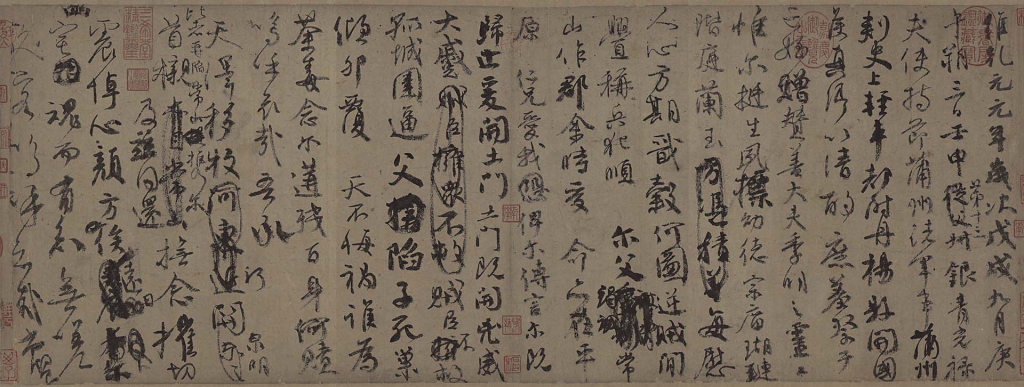 維乾元元年歲次戊戌九月庚
午朔三日壬申第十三從父銀青光祿
夫使持節蒲州諸軍事蒲州
刺史上輕車都尉丹楊縣開國
侯真卿以清酌庶羞祭于
亡姪贈贊善大夫季明之靈曰
惟爾挺生夙標幼德宗廟瑚璉
階庭蘭玉每慰
人心方期戩穀何圖逆賊閒
釁稱兵犯順爾父竭誠常
山作郡余時受命亦在平
原仁兄愛我俾爾傳言爾既
歸止爰開土門土門既開凶威
大蹙賊臣不救
孤城圍逼父陷子死巢
傾卵覆天不悔禍誰為
荼毒念爾遘殘百身何贖
嗚乎哀哉吾承
天澤移牧河關泉明
比者再陷常山攜爾
首櫬及茲同還撫念摧切
震悼心顏方俟遠日
宅魂而有知無嗟
久客嗚呼哀哉尚饗